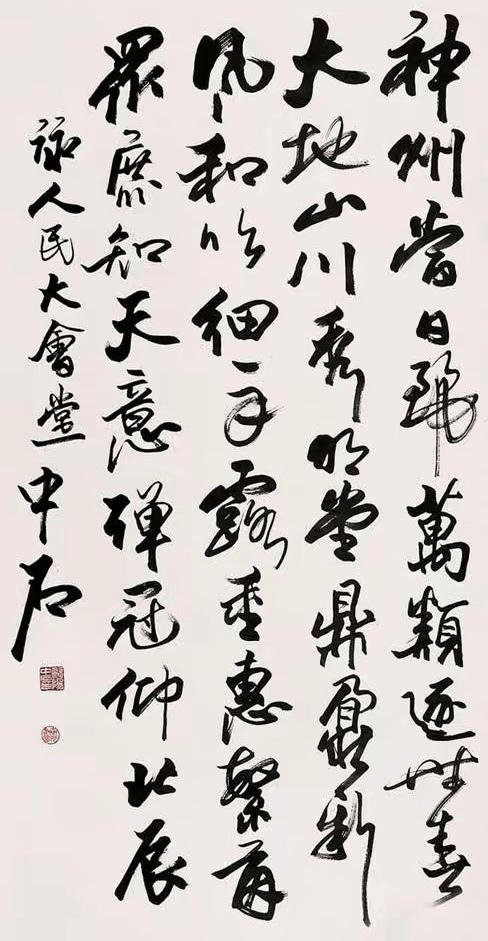 神州當日麗萬類逐時春
大地山川秀明堂鼎鼐新
風和吹細露垂惠繁
眾庶知天意彈冠仰北辰
詠人民大會堂
中石